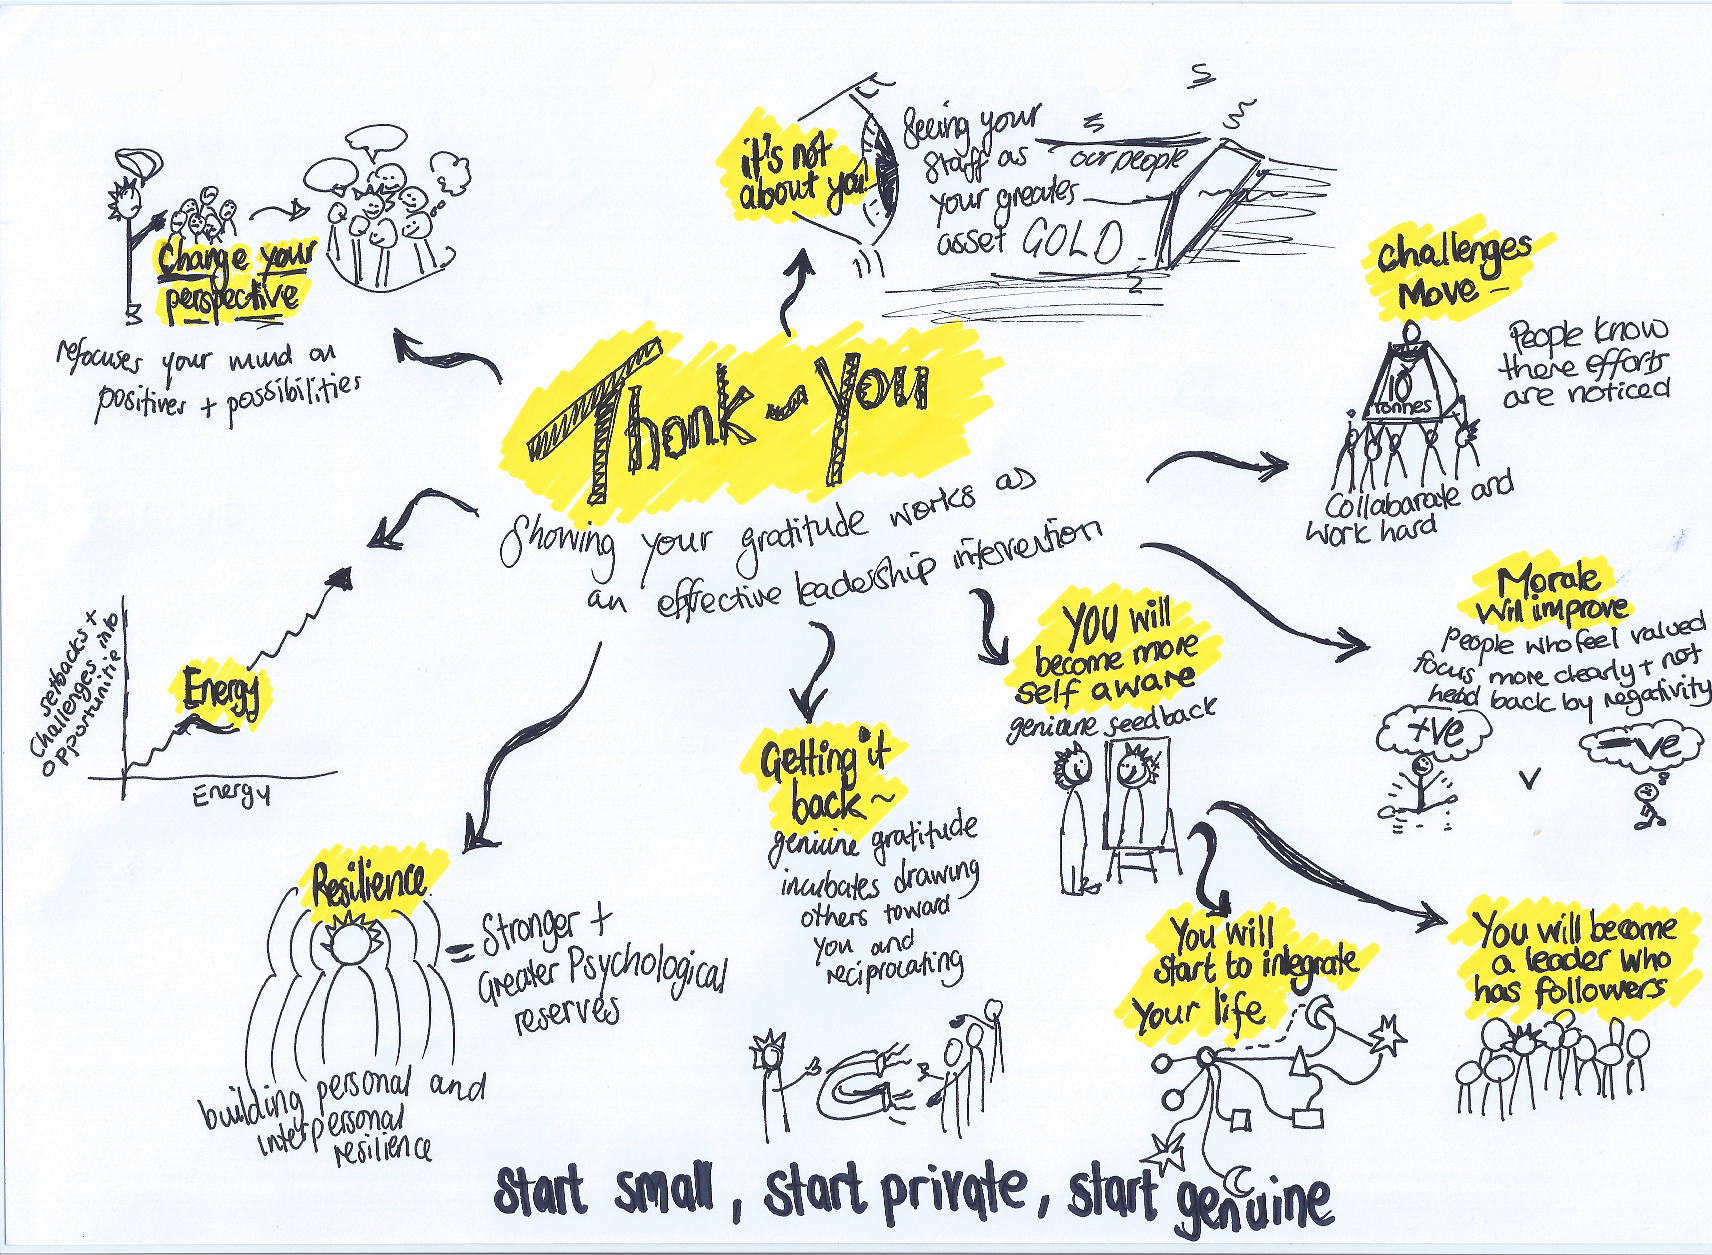 Thank-you
Showing your gratitude works as
an effective leadership intervention
Change your
perspective
refocuses your mind on
positives + possibilities
it's not
about you
Seeing your
staff as
your greates
asset GOLD
our people
Challenges
Move -
People know
there efforts
are noticed
10
tonnes
Collabarate and
work hard
Morale
will improve
People who feel valued
focus more clearly + not
head back by negativity
+ve
v
-ve
YOU will
become more
self aware
genuine feedback
You will become
a leader who
has followers
You will
start to integrate
your life
Getting it
back ~
genuine gratitude
incubates drawing
others toward
you and
reciprocating
Resilience
= Stronger +
Greater Psychological
reserves
building personal and
interpersonal
resilience
Energy
setbacks +
Challenges into
opportunitie
Energy
Start small, start private, start genuine